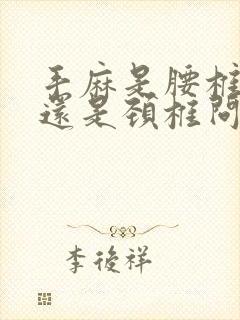 手麻是腰椎
還是頸椎問
李後祥